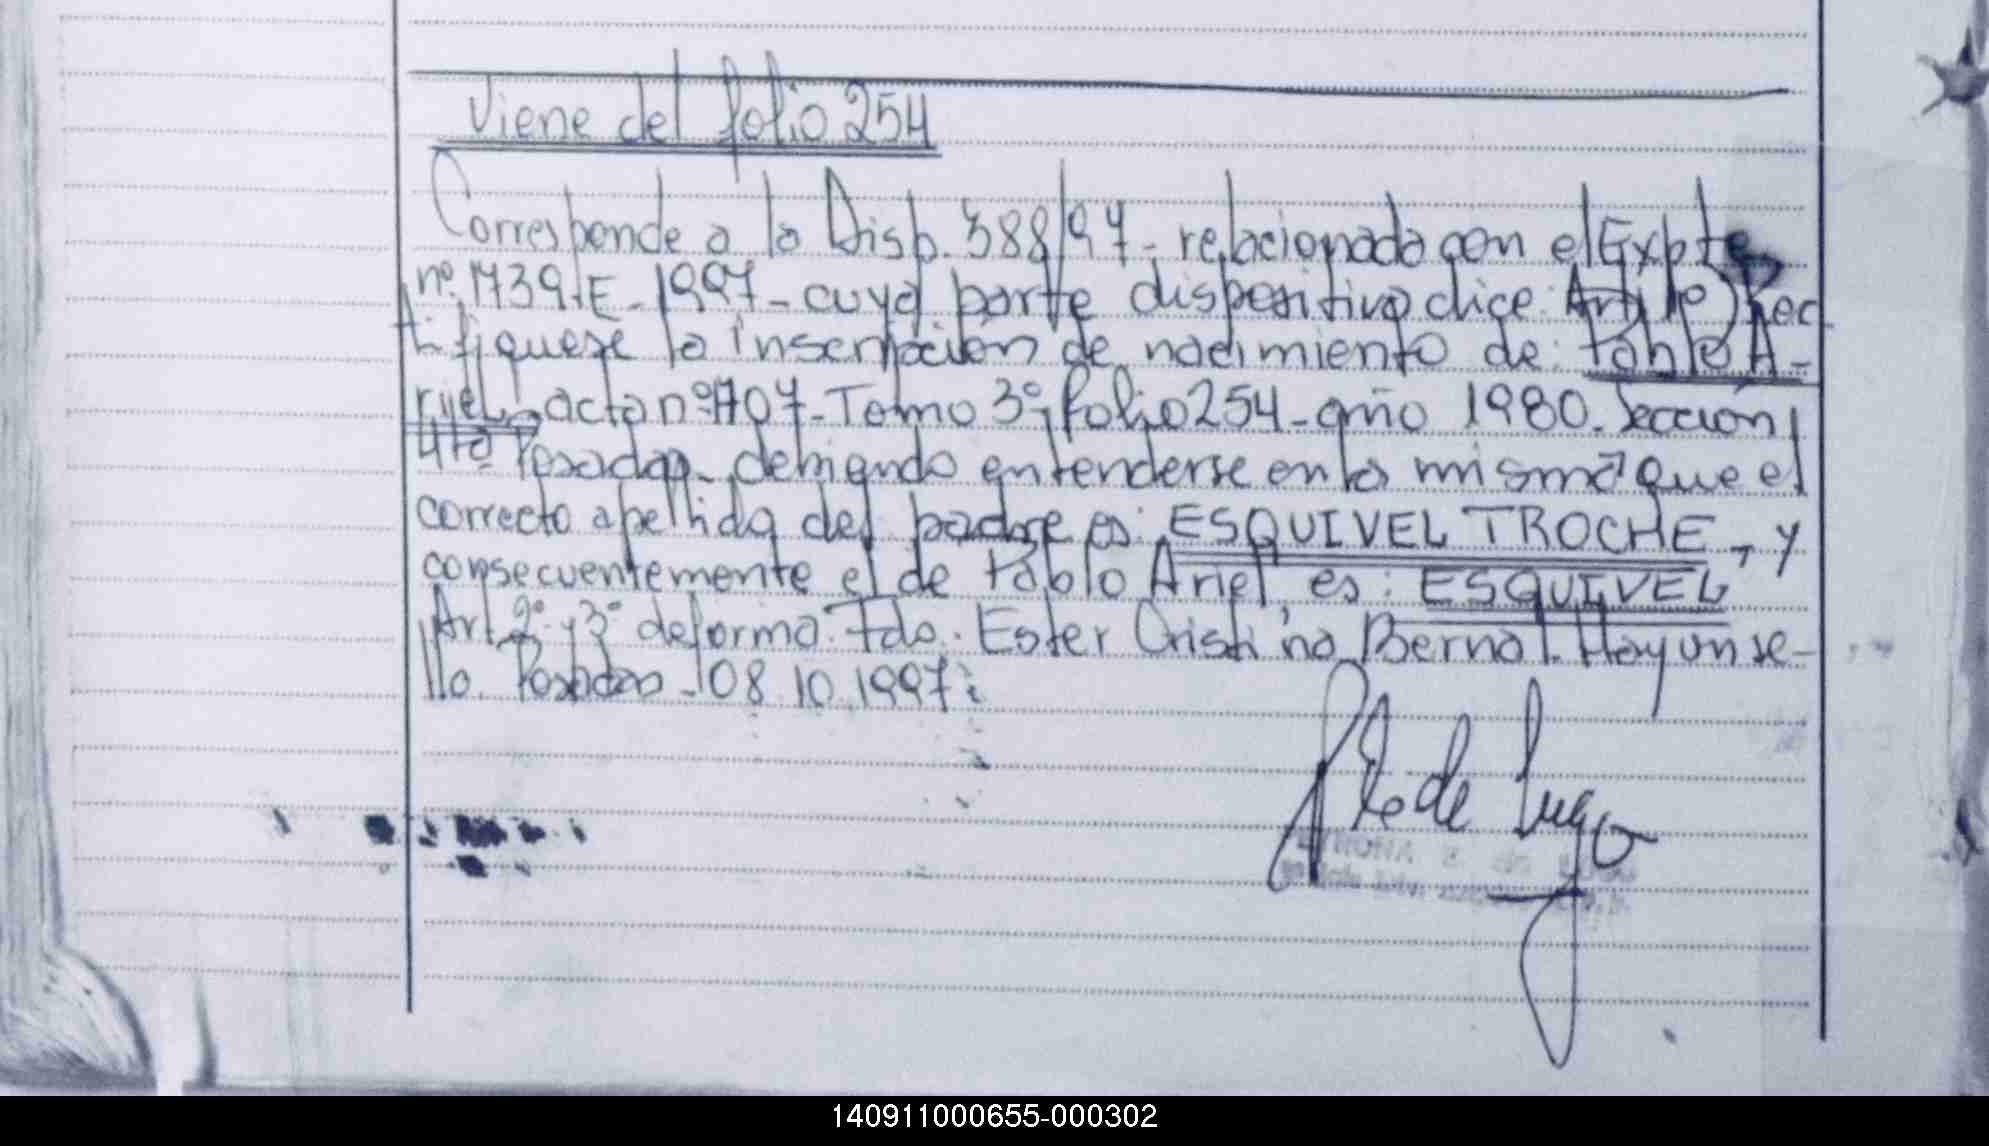 Viene del folio 254
Corresponde a la Disp. 388/97- relacionada con el Expte
nº 1739-E-1997- cuya parte dispositiva dice: Art. 1º) Rec-
tifiquese la inscripcion de nacimiento de: Pablo A-
riel, acta nº 1707- Tomo 3º, folio 254- año 1980. Sección
4ta Posadas- debiendo entenderse en la misma que el
correcto apellido del padre es: ESQUIVEL TROCHE, y
consecuentemente el de Pablo Ariel es: ESQUIVEL
Art. 2º y 3º de forma. Fdo. Ester Cristina Bernal. Hay un se-
llo. Posadas- 08.10.1997
de Lugo
140911000655-000302